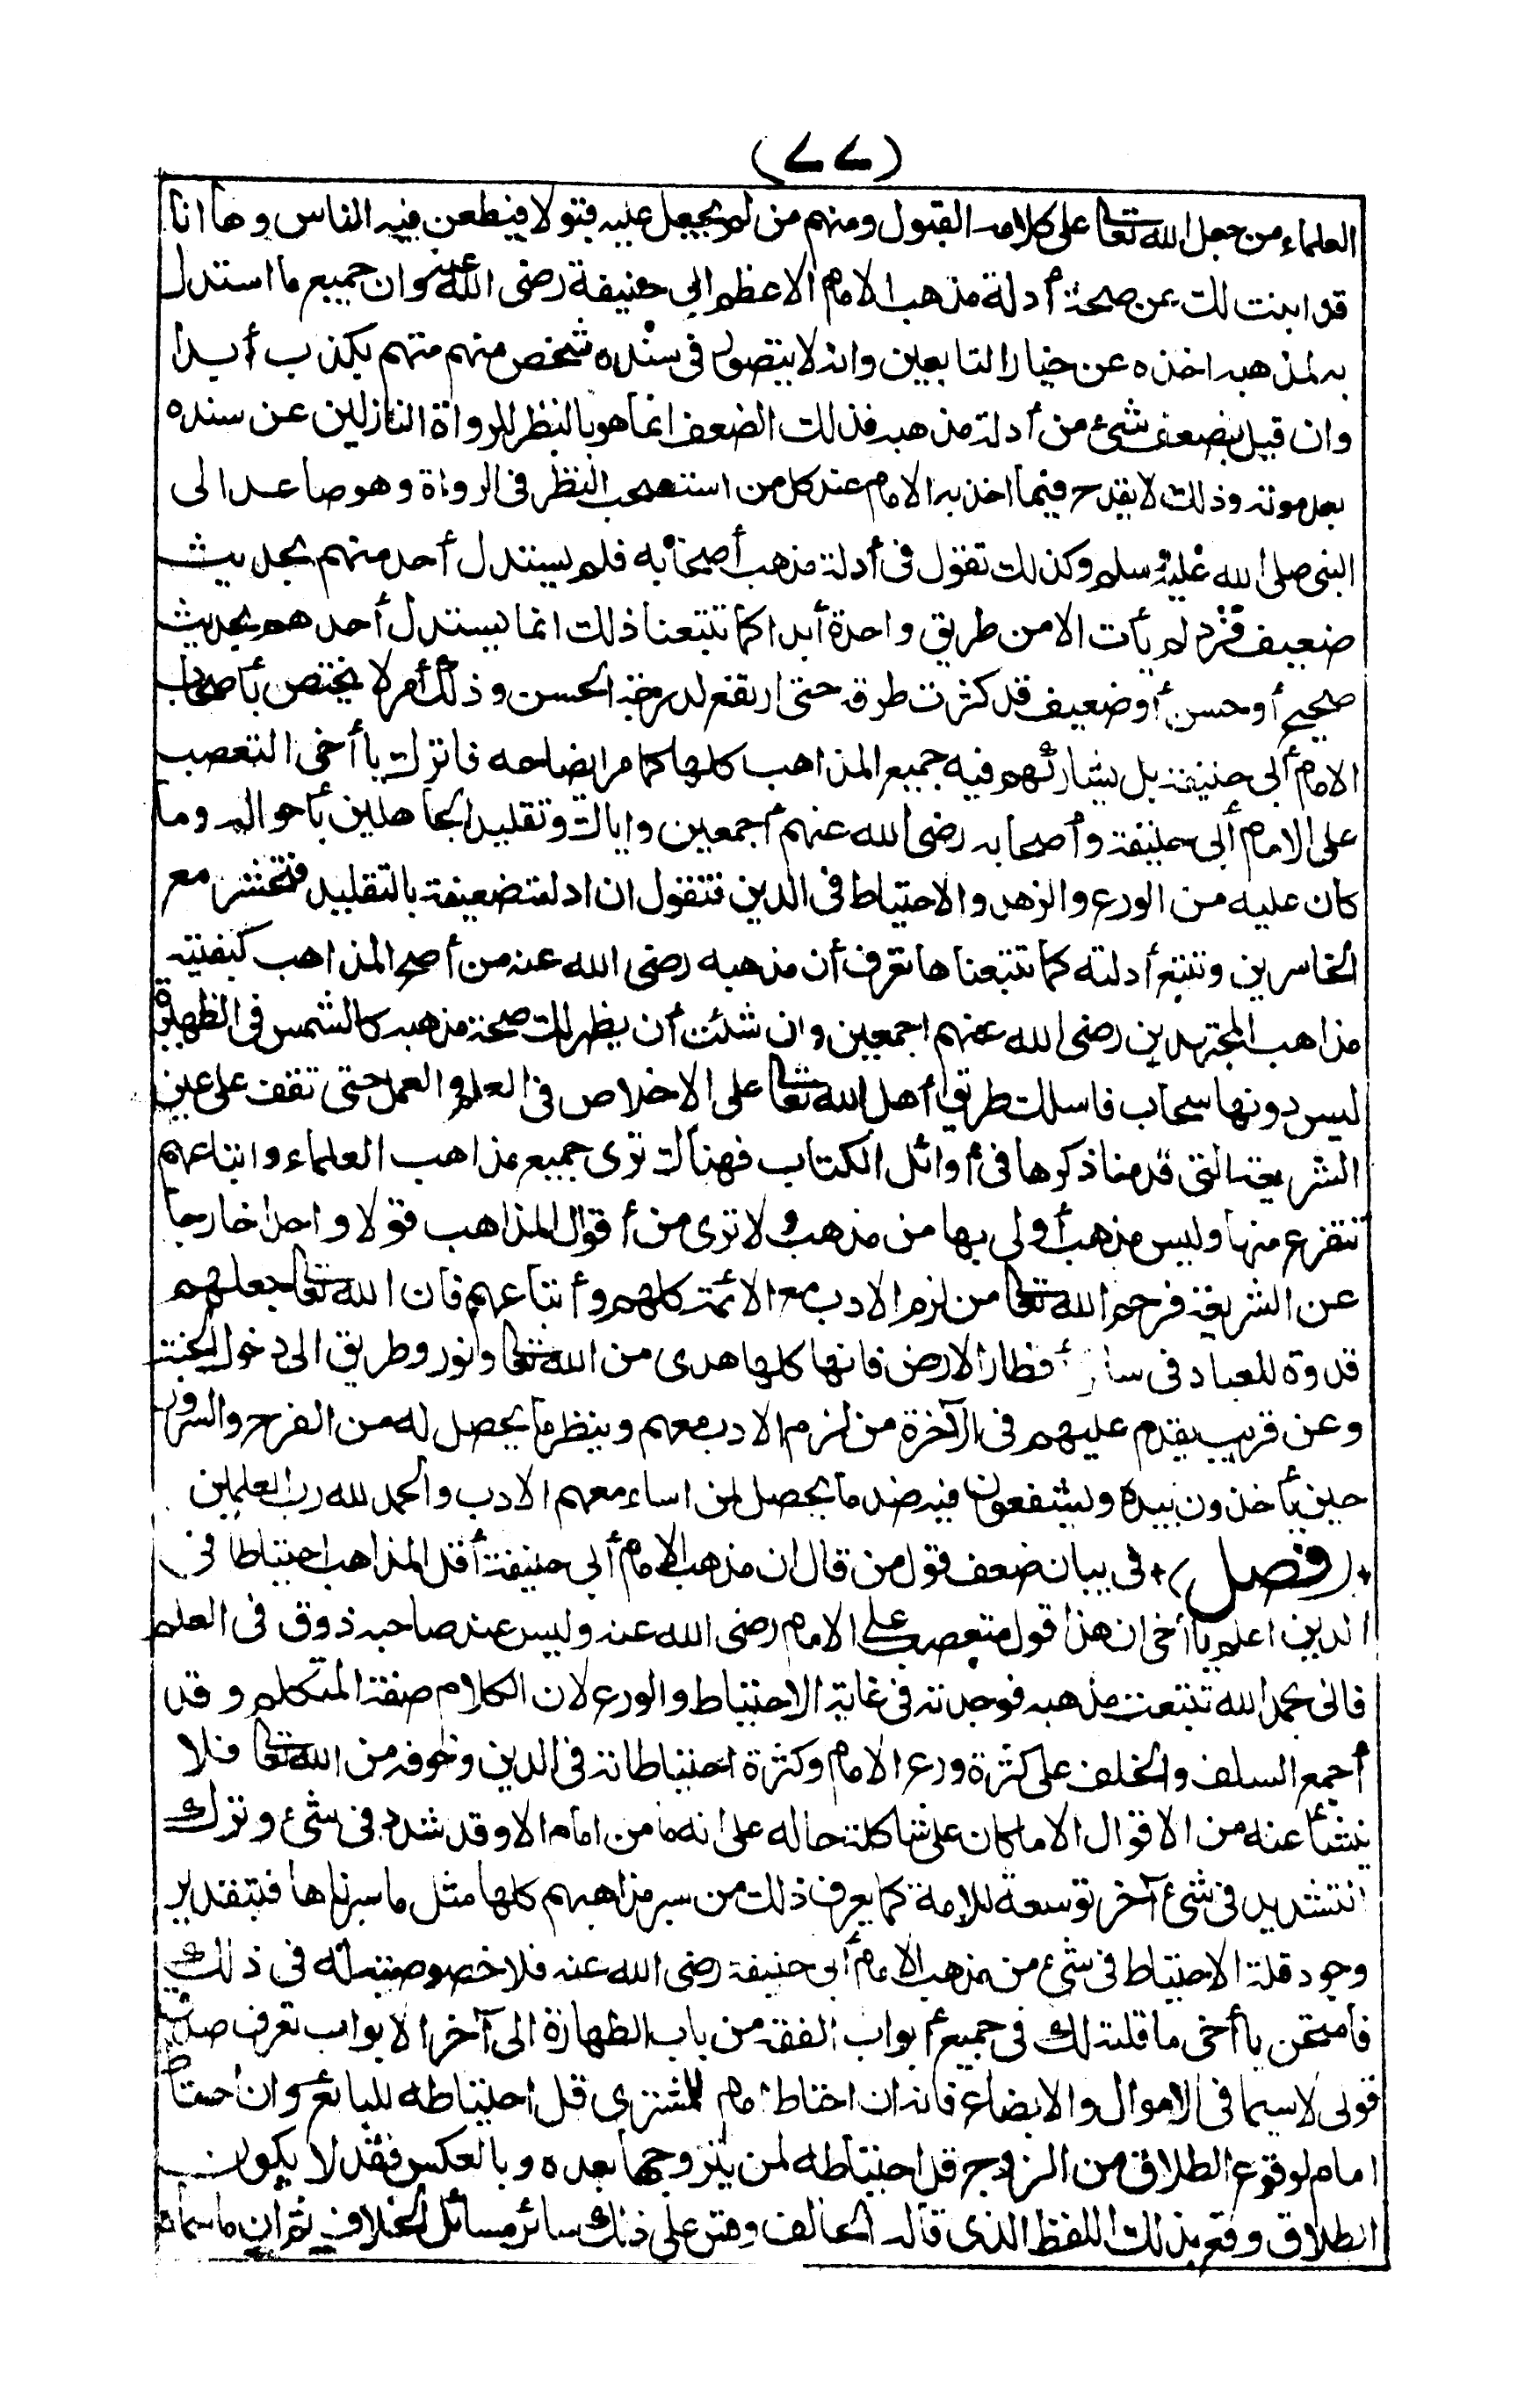 (٧٧)
العلماء من جعل الله تعالى على كلامه القبول ومنهم من لم يجعل عليه قبولا فيطعن فيه الناس وها أنا
قد ابنت لك عن صحة أدلة مذهب الامام الاعظم ابى حنيفة رضى الله عنه وان جميع ما استدل
به لمذهبه اخذه عن خيار التابعين وانه لا يتصور فى سنده شخص منهم متهم بكذب أبدا
وان قيل بضعف شئ من أدلة مذهبه فذلك الضعف انما هو بالنظر للرواة النازلين عن سنده
بعد موته وذلك لا يقدح فيما اخذ به الامام عند كل من استصحب النظر فى الرواة وهو صاعد الى
النبى صلى الله عليه وسلم وكذلك تقول فى أدلة مذهب أصحابه فلم يستدل أحد منهم بحديث
ضعيف فرد لم يأت الا من طريق واحدة أبدا كما تتبعنا ذلك انما يستدل أحدهم بحديث
صحيح أو حسن أو ضعيف قد كثرت طرقه حتى ارتفع لدرجة الحسن وذلك أمر لا يختص بأصحاب
الامام أبى حنيفة بل يشاركهم فيه جميع المذاهب كلها كما مر ايضاحه فاترك يا أخى التعصب
على الامام أبى حنيفة وأصحابه رضى الله عنهم أجمعين واياك وتقليد الجاهلين بأحواله وما
كان عليه من الورع والزهد والاحتياط فى الدين فتقول ان ادلته ضعيفة بالتقليد فتحشر مع
الخاسرين وتتبع أدلته كما تتبعناها تعرف أن مذهبه رضى الله عنه من أصح المذاهب كبقية
مذاهب المجتهدين رضى الله عنهم اجمعين وان شئت أن يظهر لك صحة مذهبه كالشمس فى الظهيرة
ليس دونها سحاب فاسلك طريق أهل الله تعالى على الاخلاص فى العلم والعمل حتى تقف على عين
الشريعة التى قدمنا ذكرها فى أوائل الكتاب فهناك ترى جميع مذاهب العلماء واتباعهم
تتفرع منها وليس مذهب أولى بها من مذهب ولا ترى من أقوال المذاهب قولا واحدا خارجا
عن الشريعة فرحم الله تعالى من لزم الادب مع الائمة كلهم وأتباعهم فان الله تعالى جعلهم
قدوة للعباد فى سائر أقطار الارض فانها كلها هدى من الله تعالى ونور وطريق الى دخول الجنة
وعن قريب يقدم عليهم فى الآخرة من لزم الادب معهم وينظر ما يحصل له من الفرح والسرور
حين يأخذون بيده ويشفعون فيه ضد ما يحصل لمن اساء معهم الادب والحمد لله رب العلمين
+(فصل)+ فى بيان ضعف قول من قال ان مذهب الامام أبى حنيفة أقل المذاهب احتياطا فى
الدين اعلم يا أخى ان هذا قول متعصب على الامام رضى الله عنه وليس عند صاحبه ذوق فى العلم
فانى بحمد الله تتبعت مذهبه فوجدته فى غاية الاحتياط والورع لان الكلام صفة المتكلم وقد
أجمع السلف والخلف على كثرة ورع الامام وكثرة احتياطاته فى الدين وخوفه من الله تعالى فلا
ينشأ عنه من الاقوال الا ما كان على شاكلة حاله على انه ما من امام الا وقد شدد فى شئ وترك
التشديد فى شئ آخر توسعة للامة كما يعرف ذلك من سبر مذاهبهم كلها مثل ما سبرناها فبتقدير
وجود قلة الاحتياط فى شئ من مذهب الامام أبى حنيفة رضى الله عنه فلا خصوصية له فى ذلك
فامتحن يا أخى ما قلته لك فى جميع أبواب الفقه من باب الطهارة الى آخر الابواب تعرف صدق
قولى لا سيما فى الاموال والابضاع فانه ان احتاط امام للمشترى قل احتياطه للبائع وان احتاط
امام لوقوع الطلاق من الزوج قل احتياطه لمن يتزوجها بعده وبالعكس فقد لا يكون
الطلاق وقع بذلك اللفظ الذى قاله الحالف وقس على ذلك سائر مسائل الخلاف ثم ان ما سماه